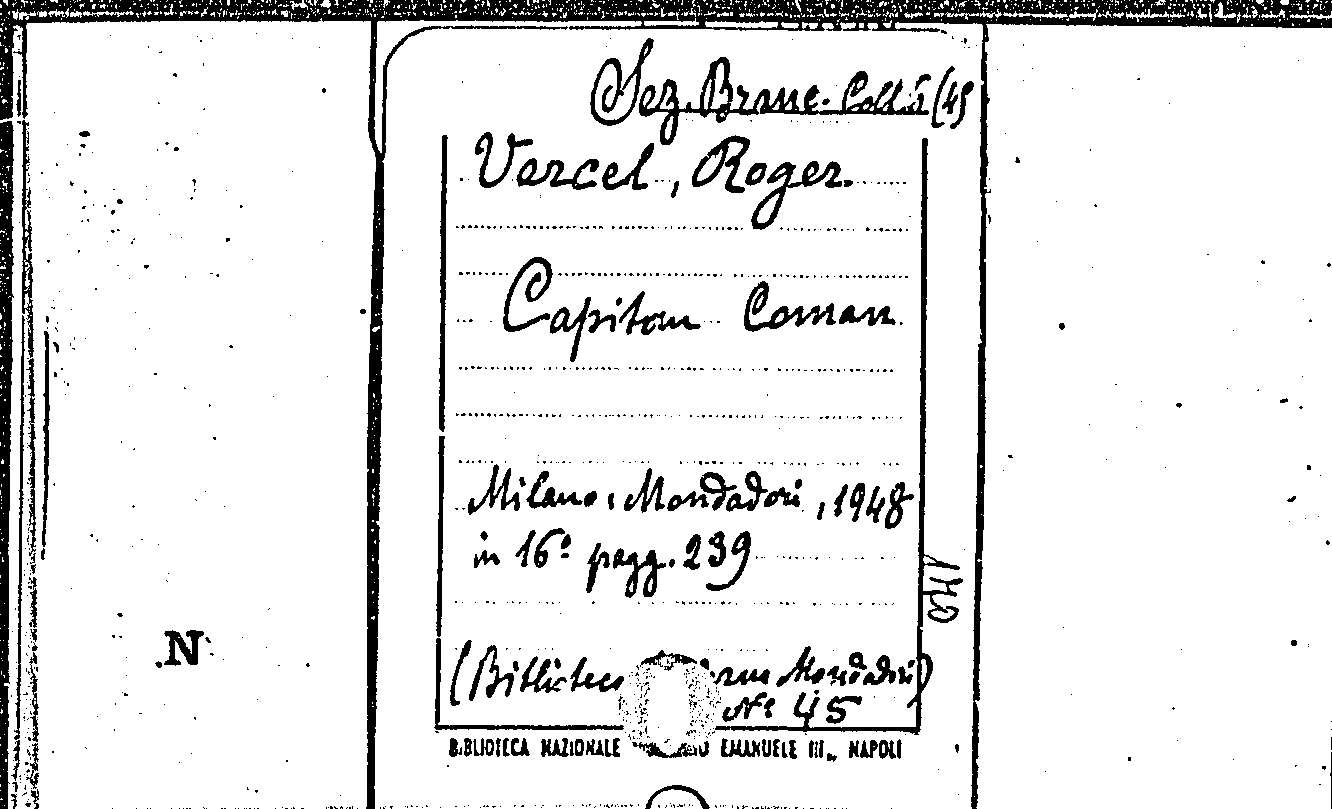 Sez. Branc. Coll. 5 (45
Vercel, Roger.
Capitan Conan
Milano, Mondadori, 1948
in 16º pagg. 239
1740
N
(Biblioteca Mondadori)
Nº 45
BIBLIOTECA NAZIONALE EMANUELE III„ NAPOLI